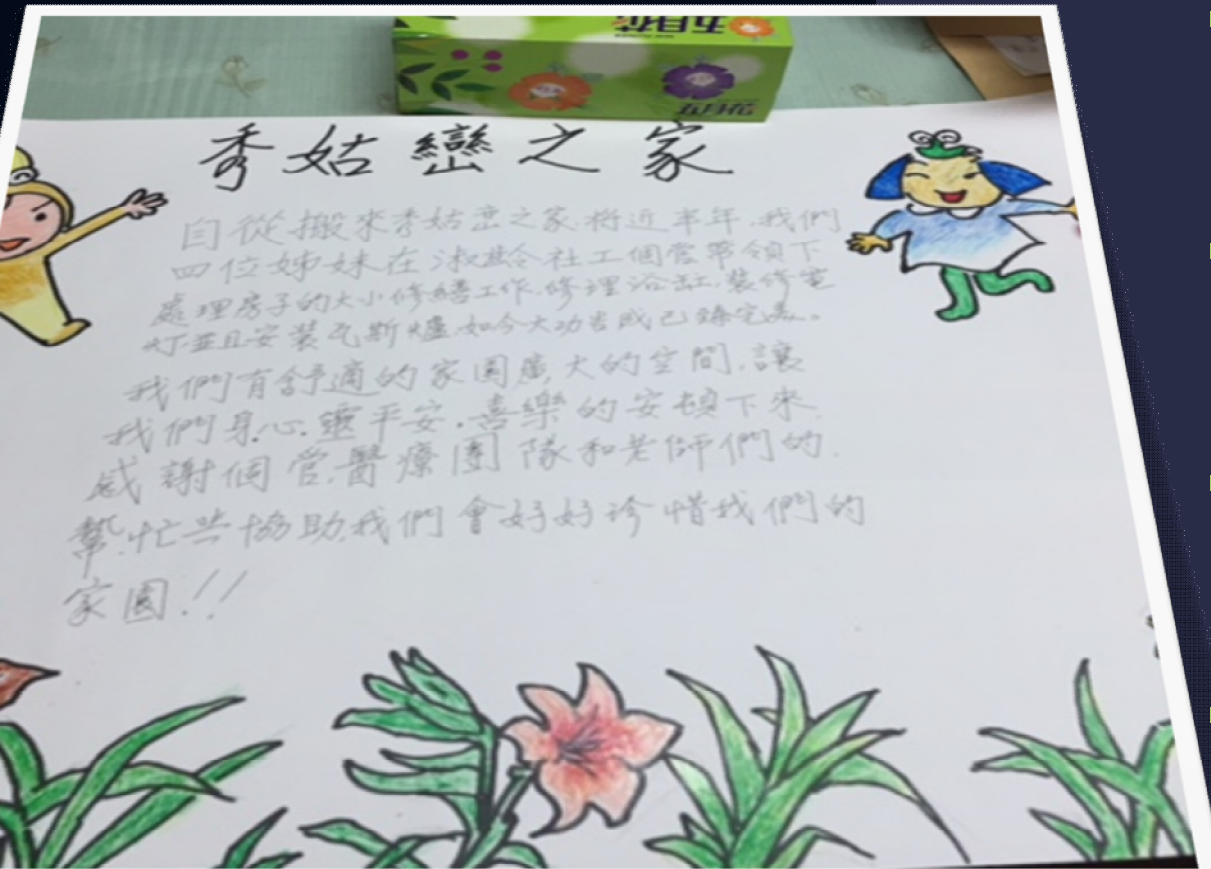 五月花
五月花
秀姑巒之家
自從搬來秀姑巒之家.將近半年.我們
四位姊妹在淑齡社工個管帶領下
處理房子的大小修繕工作.修理浴缸.裝修電
灯並且安裝瓦斯爐.如今大功告成已臻完美。
我們有舒適的家園廣大的空間.讓
我們身.心.靈平安.喜樂的安頓下來.
感謝個管.醫療團隊和老師們的.
幫忙共協助.我們會好好珍惜我們的
家園.!!